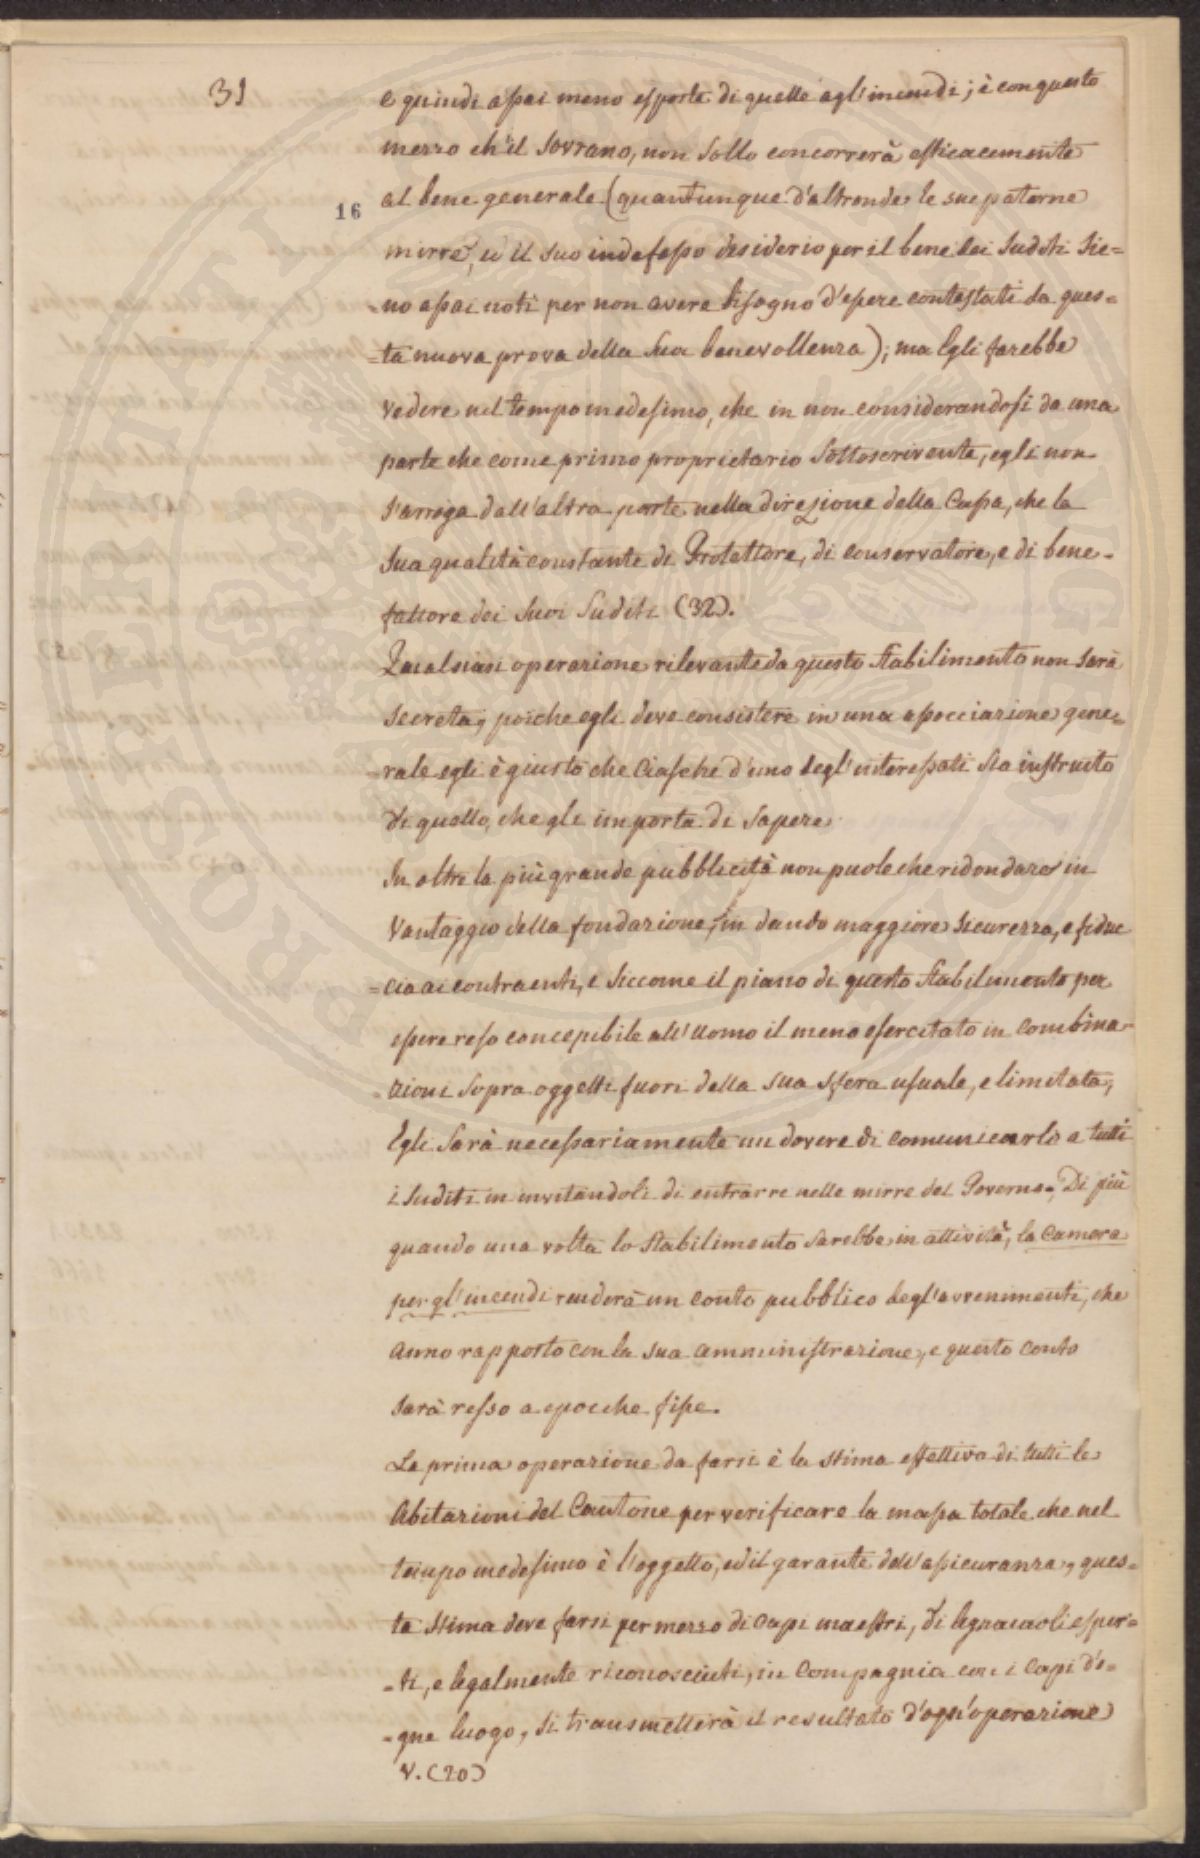 31
e quindi assai meno esposte di quelle agl'incendi; è con questo
mezzo ch'il Sovrano, non sollo concorrerà efficacemente
16
al bene generale (quantunque d'altronde le sue paterne
mirre, ed il suo indefesso desiderio per il bene dei Suditi sie=
=no assai noti per non avere bisogno d'essere contestati da ques=
=ta nuova prova della sua benevollenza); ma Egli farebbe
vedere nel tempo medesimo, che in non considerandosi da una
parte che come primo proprietario Sottoscrivente, egli non
s'arroga dall'altra parte nella direzione della Cassa, che la
sua qualità constante di Protettore, di conservatore, e di bene-
fattore dei suoi Suditi (32).
Qualsiasi operazione rilevante da questo stabilimento non sarà
secreta, poiche egli deve consistere in una associazione gene=
=rale egli è giusto che Ciasche d'uno degl'interessati sia instruito
di quello, che gli importa di sapere
In oltre la più grande pubblicità non puole che ridondare in
vantaggio della fondazione, in dando maggiore sicurezza, e fidu
=cia ai contraenti, e siccome il piano di questo stabilimento per
essere reso concepibile all'uomo il meno esercitato in combina-
=zioni sopra oggetti fuori della sua sfera usuale, e limitata,
Egli sarà necessariamente un dovere di comunicarlo a tutti
i Suditi in invitandoli di entrarre nelle mirre del Governo. Di più
quando una volta lo stabilimento sarebbe in attività, la Camera
per gl'incendi renderà un conto pubblico degl'avvenimenti, che
anno rapporto con la sua amministrazione, e questo conto
sarà resso a epocche fisse.
La prima operazione da farsi è la stima effettiva di tutti le
Abitazioni del Cantone per verificare la massa totale che nel
tempo medesimo è l'oggetto, ed il garante dell'assicuranza, ques=
ta stima deve farsi per mezzo di capi maestri, di legnaiuoli esper=
=ti, e legalmente riconosciuti, in compagnia con i capi d'o=
=gne luogo, si transmetterà il resultato d'ogn'operazione
V. (20)